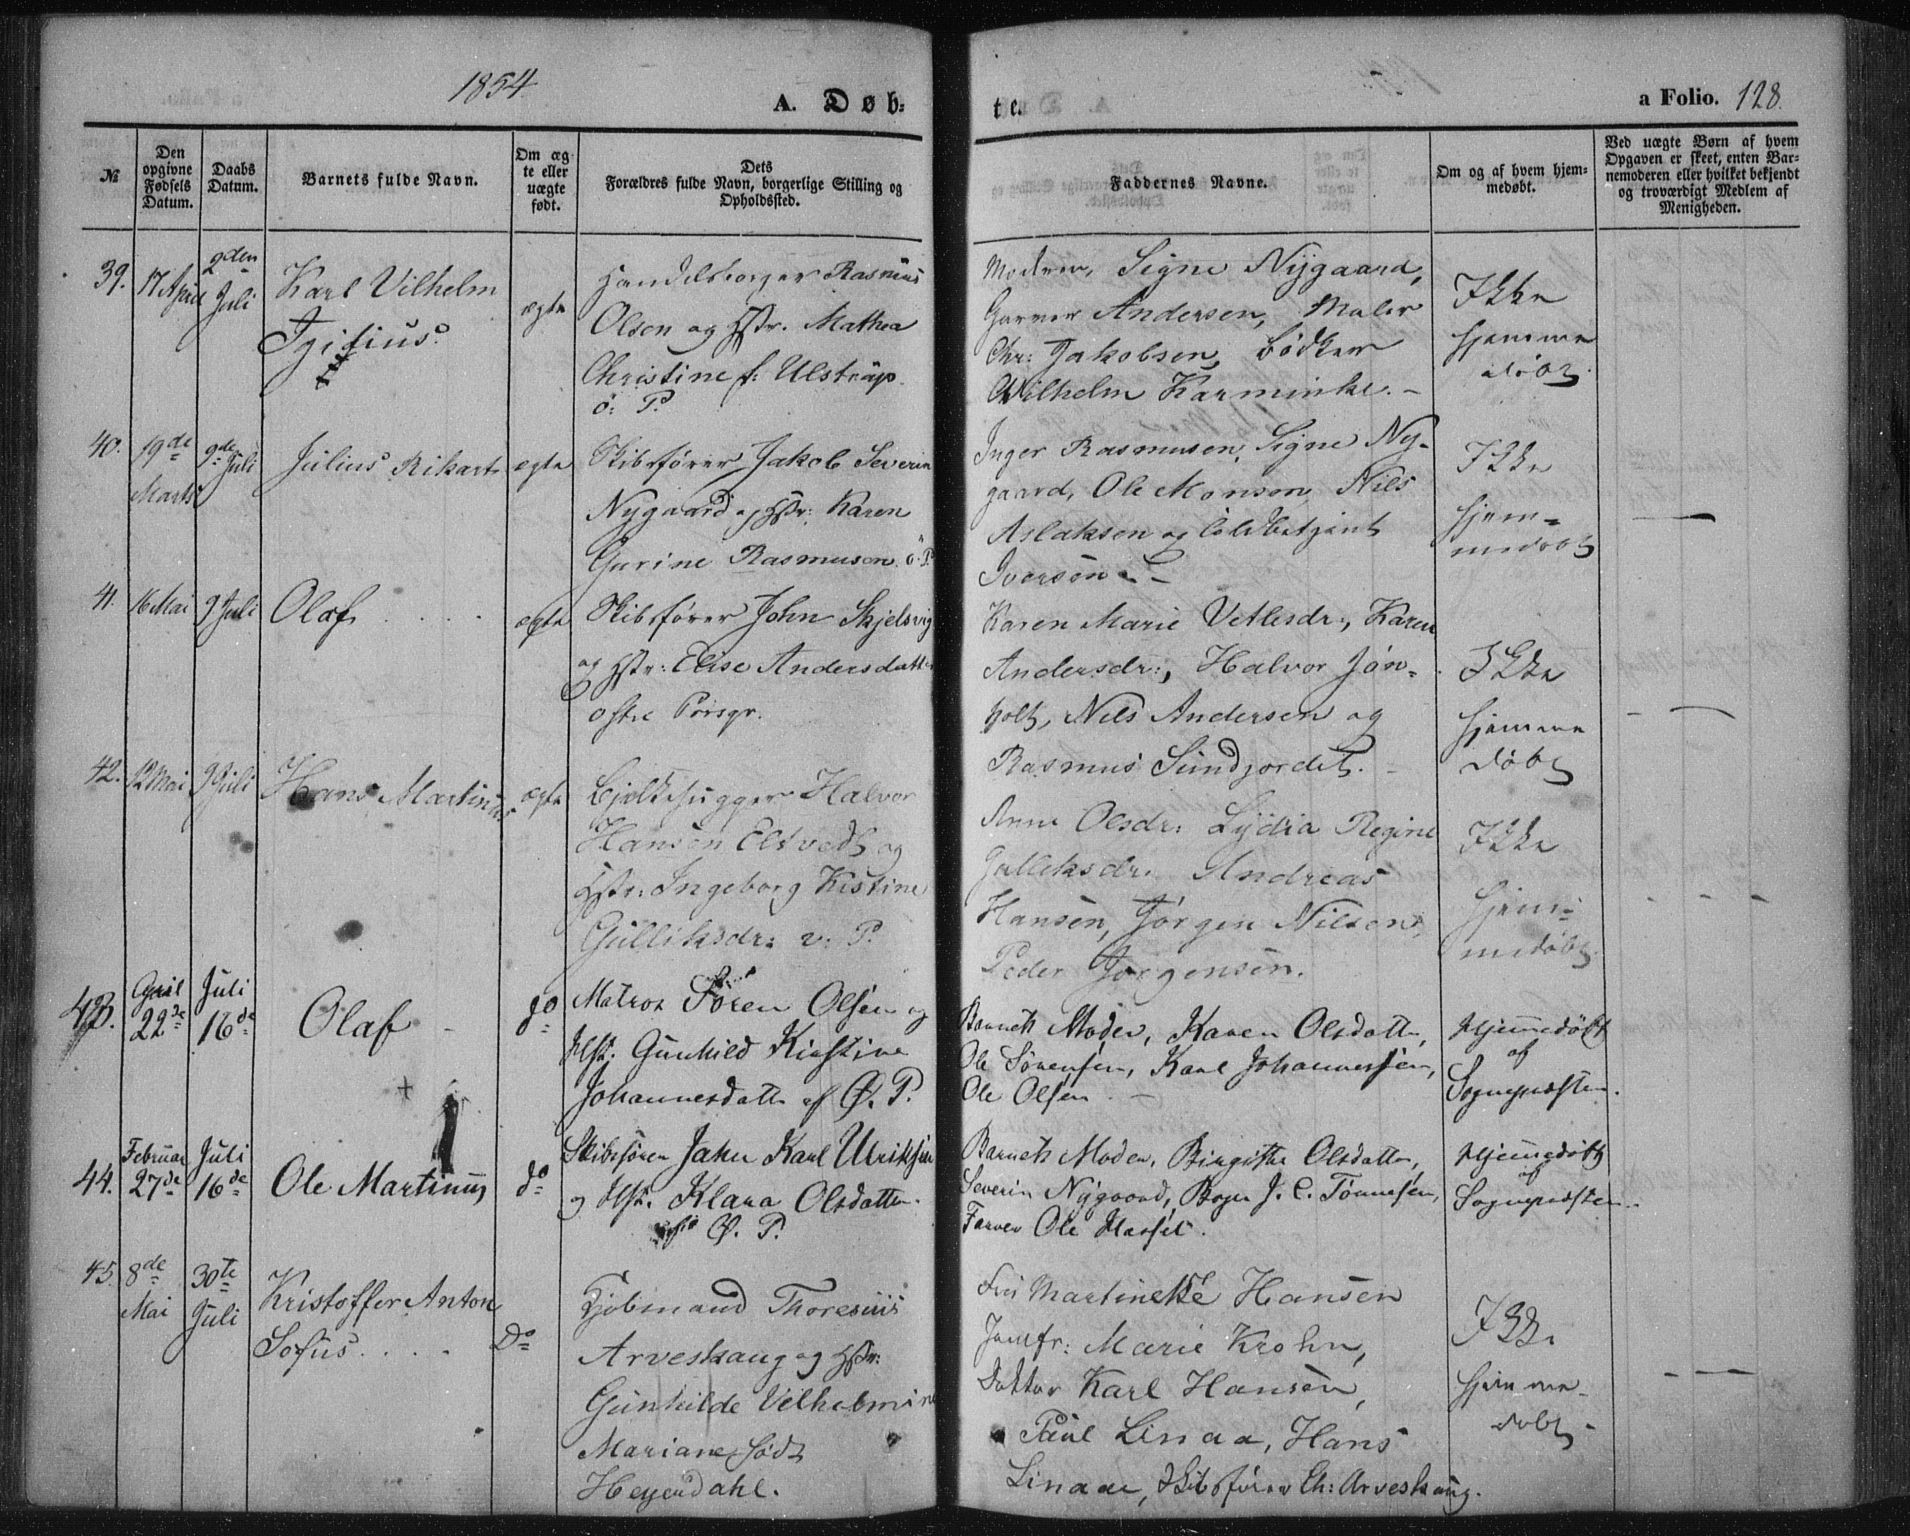 1854
A. Døb:
te.
a Folio. 128.
№
Den opgivne Fødsels Datum.
Daabs Datum.
Barnets fulde Navn.
Om ægte eller uægte født.
Dets Forældres fulde Navn, borgerlige Stilling og Opholdssted.
Faddernes Navne.
Om og af hvem hjemmedøbt.
Ved uægte Børn af hvem Opgaven er skeet, enten Barnemoderen eller hvilket bekjendt og troværdigt Medlem af Menigheden.
39.
17 April
2den Juli
Karl Vilhelm
ægte
Handelsborger Rasmus
Olsen og Hstr. Mathea
Christine f: Ulstrup
ö: P.
Modren, Signe Nygaard,
Garver Andersen, Maler
Chr: Jakobsen, Bödker
Wilhelm Karminke. –
Ikke
hjemme
døbt.
40.
19de Marts
9de Juli
Julius Rikart
ægte
Skibsfører Jakob Severin
Nygaard og Hstr: Karen
Gurine Rasmusen ö: P.
Inger Rasmusen, Signe Ny-
gaard, Ole Monson Nils
Aslaksen og Toldbetjent
Iversen. –
Ikke
hjem-
medøbt
41.
16 Mai
9 Juli
Olaf
ægte
Skibsfører John Skjelsvig
og Hstr: Elise Andersdatter
østre Porsgr.
Karen Marie Vetlesdr:, Karen
Andersdr:, Halvor Jøn-
holt, Nils Andersen og
Rasmus Sundjordet. –
Ikke
hjemme
døbt
42.
12 Mai
9 Juli
Hans Martinus
ægte
Bjelkehugger Halvor
Hansen Elstvedt og
Hstr: Ingeborg Kistine
Gulliksdr: v: P.
Anne Olsdr: Lydia Regine
Gulleksdr. Andreas
Hansen, Jörgen Nilsen,
Peder Jørgensen.
Ikke
hjem-
medøbt.
43.
April 22de
Juli 16de
Olaf
do
Matros Sören Olsen og
Hst. Gunhild Kirstine
Johannesdatter af Ø. P.
Barnets Moder, Karen Olsdatter,
Ole Sørensen, Karl Johannessen,
Ole Olsen. –
Hjemmedøbt
af
Sognepræsten.
44.
Februar 27de
Juli 16de
Ole Martinus
do
Skibsfører Jaken Karl Ulriksen
og Hst. Klara Olsdatter
Ø. P.
Barnets Moder, Birgithe Olsdatter,
Severin Nygaard, J. C. Tønnesen,
Farver Ole Hassel.
Hjemmedøbt
af
Sognepræsten.
45.
8de Mai
30te Juli
Kristoffer Anton
Sofus
Do
Kjöbmand Thoresius
Arveskaug og Hstr:
Gunhilde Velhelmine
Mariane født
Heyerdahl.
Fru Martinette Hansen
Jomfr: Marie Krohn,
Doktor Karl Hansen,
Paul Linaa, Hans
Linaae, Skibsfører Ch: Arveskaug.
Ikke
hjemme-
døbt